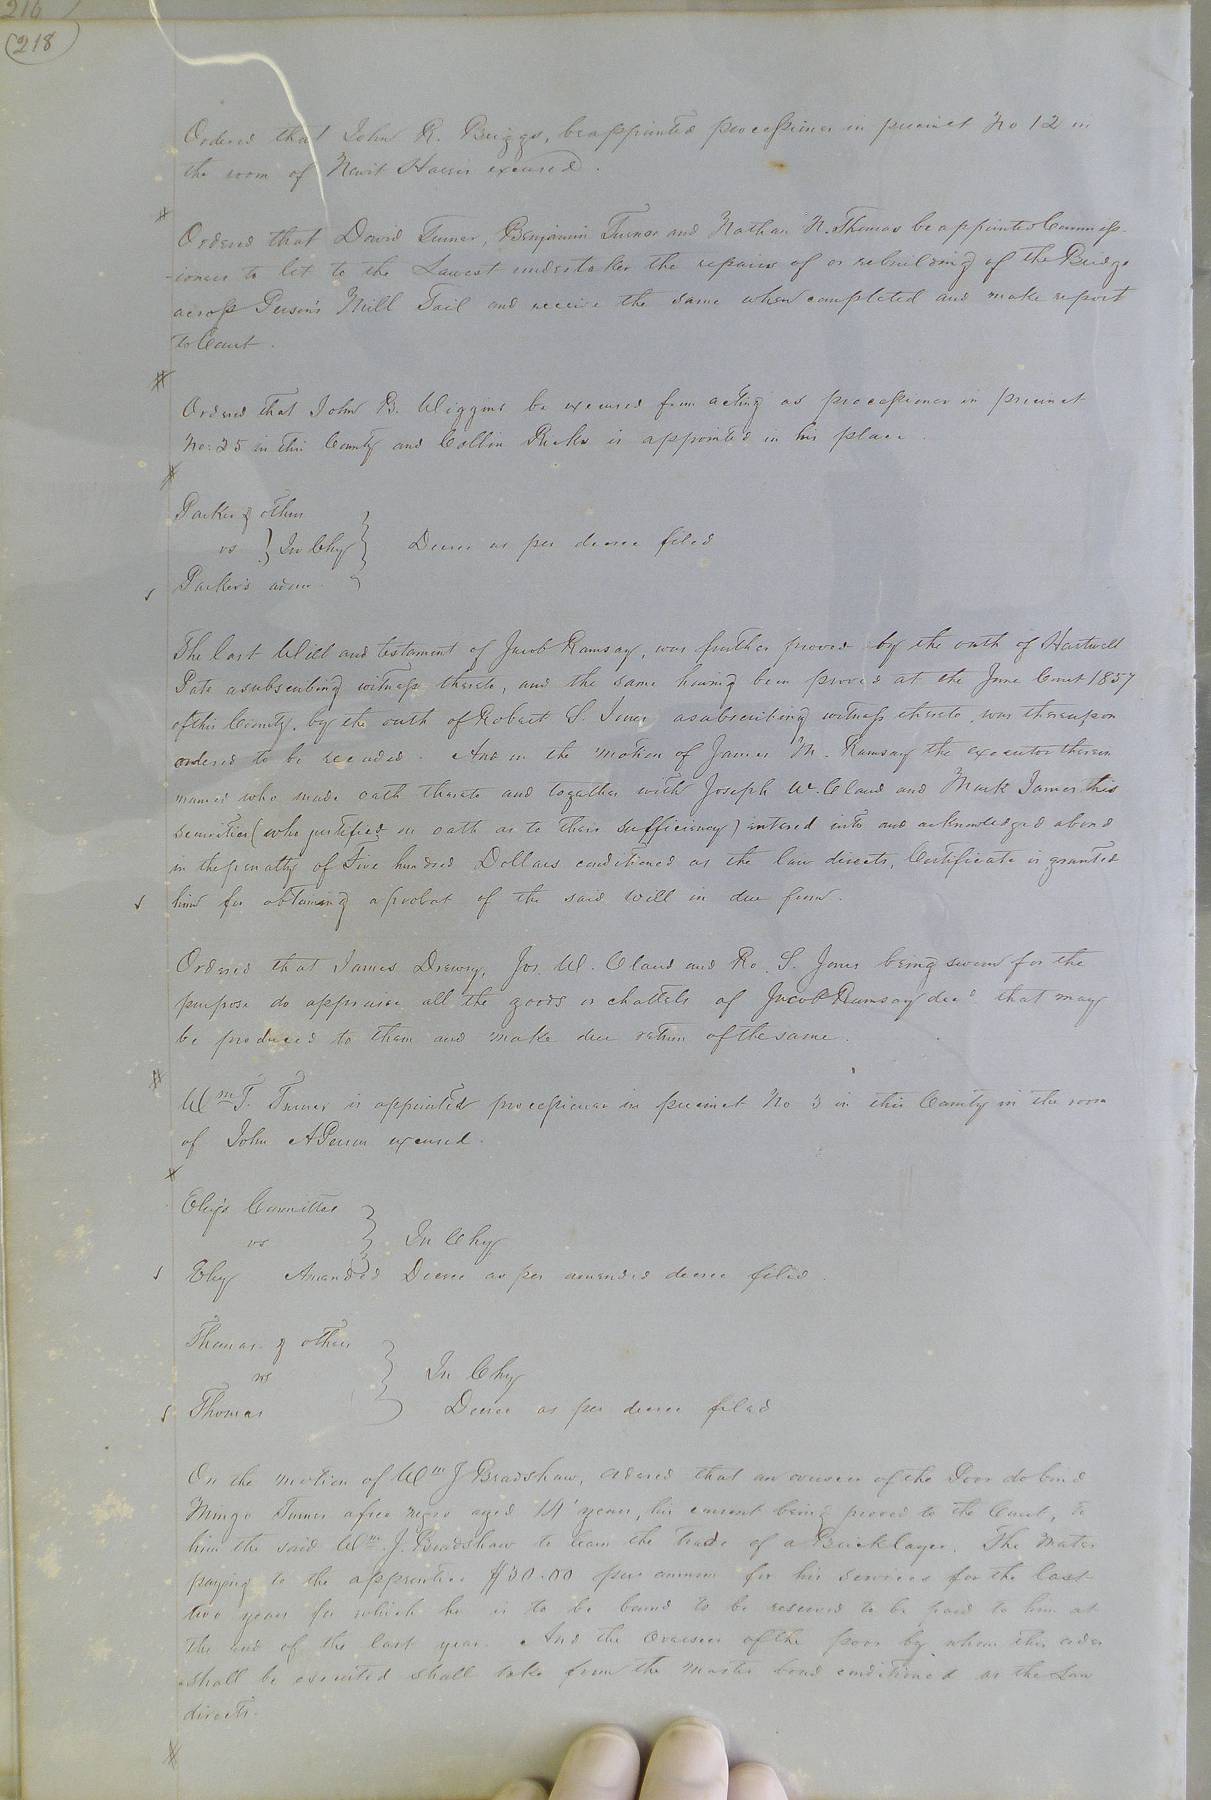 216
(218)
Ordered that John R. Briggs, be appointed processioner in precinct No 12 in
the room of Newit Harris excused.
Ordered that David Turner, Benjamin Turner and Nathan N. Thomas be appointed Commiss-
-ioners to let to the Lowest undertaker the repairs of or rebuilding of the Bridge
across Person's Mill Tail and receive the same when completed and make report
to Court.
Ordered that John B. Wiggins be excused from acting as processioner in precinct
No: 25 in this County and Collin Ricks is appointed in his place.
Parker & others
vs } In Chy } Decree as per decree filed
Parker's admr.
The last Will and testament of Jacob Ramsay, was further proved by the oath of Hartwell
Pate a subscribing witness thereto, and the same having been proved at the June Court 1857
of this County, by the oath of Robert S. Jones a subscribing witness thereto, was thereupon
ordered to be recorded. And on the motion of James M. Ramsay the executor therein
named who made oath thereto and together with Joseph W. Claud and Mark James his
securities (who justified on oath as to their sufficiency) intered into and acknowledged a bond
in the penalty of Five hundred Dollars conditioned as the law directs, Certificate is granted
him for obtaining a probat of the said Will in due form.
Ordered that James Drewry, Jos. W. Claud and Ro. S. Jones being sworn for the
purpose do appraise all the goods or chattels of Jacob Ramsay decd that may
be produced to them and make due return of the same.
Wm T. Turner is appointed processioner in precinct No 3 in this County in the room
of John A Person excused.
Ely's Committee
vs } In Chy
Ely Amended Decree as per amended decree filed.
Thomas & others
vs } In Chy
Thomas Decree as per decree filed
On the motion of Wm J Bradshaw, ordered that an overseer of the Poor do bind
Mingo Turner a free negro aged 14 years, his consent being proved to the Court, to
him the said Wm. J. Bradshaw to learn the trade of a Bricklayer. The Master
paying to the apprentice $30.00 per annum for his services for the last
two years for which he is to be bound to be reserved to be paid to him at
the end of the last year. And the Overseer of the poor by whom this order
shall be executed shall take from the Master bond conditioned as the Law
directs.